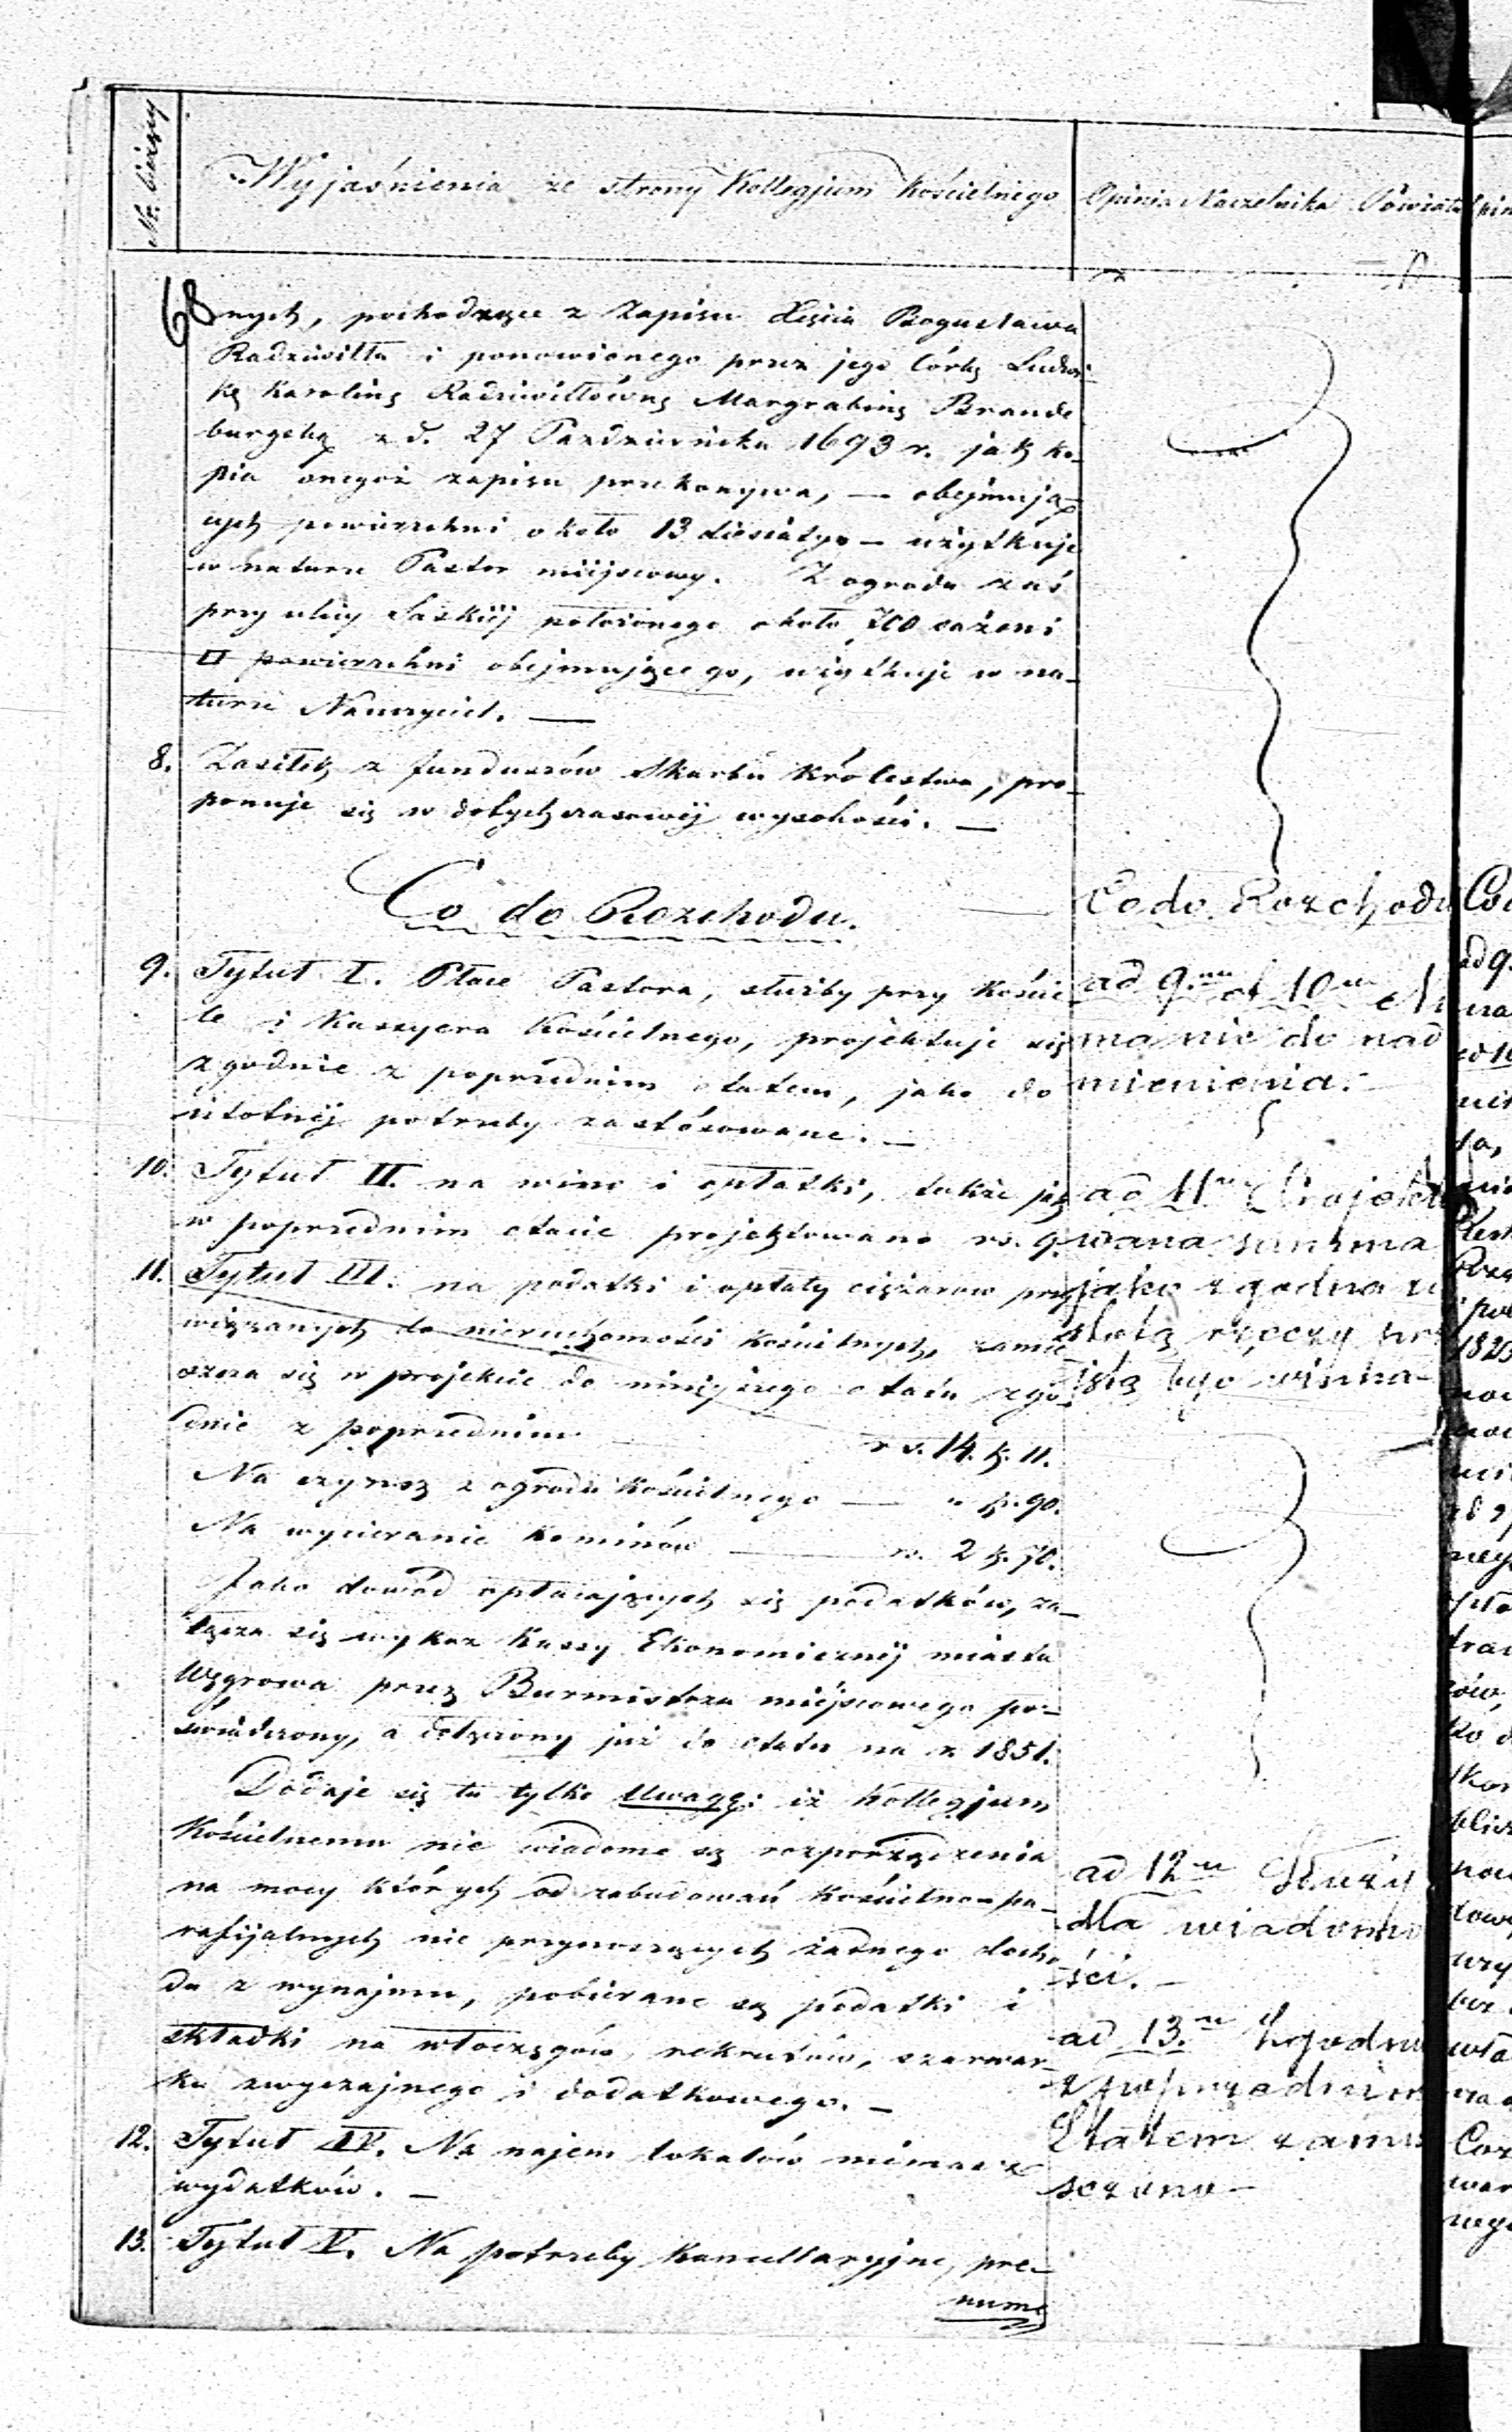 Nr. bieżący
Wyjaśnienia ze strony Kollegjum Kościelnego
Opinia Naczelnika Powiatu
68
nych, pochodzące z zapisu Xięcia Bogusława
Radziwiłła i ponowionego przez jego Córkę Ludwi-
kę Karolinę Radziwiłłównę Margrabinę Brande
burgską z d. 27 Października 1693 r. jak ko-
pia onegoż zapisu przekonywa, — obejmują-
cych powierzchni około 13 diesiatyn — użytkuje
w naturze Pastor miejscowy. Z ogrodu zaś
przy ulicy Saskiéj położonego około 700 sążeni
□ powierzchni obejmującego, użytkuje w na-
turze Nauczyciel. —
8. Zasiłek z funduszów Skarbu Królestwa, pro-
ponuje się w dotychczasowéj wysokości. —
Co do Rozchodu.
9. Tytuł I. Płace Pastora, służby przy Koście-
le i Kassyera Kościelnego, projektuje się
zgodnie z poprzednim etatem, jako do
istotnéj potrzeby zastósowane. —
10. Tytuł II. na wino i opłatki, także jak
w poprzednim etacie projektowano rs. 9.
11. Tytuł III. na podatki i opłaty ciężarow przy
wiązanych do nieruchomości kościelnych, zamie
szcza się w projekcie do niniejszego etatu zgo-
dnie z poprzednim rs. 14. k. 11.
Na czynsz z ogrodu kościelnego — „ k. 90.
Na wycieranie kominów — rs. 2 k. 70.
Jako dowód opłacających się podatków, za-
łącza się wykaz Kassy Ekonomicznéj miasta
Węgrowa przez Burmistrza miejscowego po-
świadczony, a dołączony już do etatu na r. 1851.
Dodaje się tu tylko uwagę: iż Kollegjum
Kościelnemu nie wiadome są rozporządzenia
na mocy których od zabudowań Kościelno-pa-
rafijalnych nie przynoszących żadnego docho
du z wynajmu, pobierane są podatki i
składki na włóczęgów, rekrutów, szarwar-
ku zwyczajnego i dodatkowego. —
12. Tytuł IV. Na najem lokalów niemasz
wydatków. —
13. Tytuł V. Na potrzeby kancellaryjne, pre-
nume
Co do Rozchodu
ad 9.mu et 10mu Ni
ma nic do nad
mienienia.
ad 11mu Projekto
wana summa
jako zgodna z i
stotą rzeczy prz
jętą być winna —
ad 12mu Służy
dla wiadomo
ści. —
ad 13.mu Zgodni
z poprzednim
Etatem zamie
szczono —